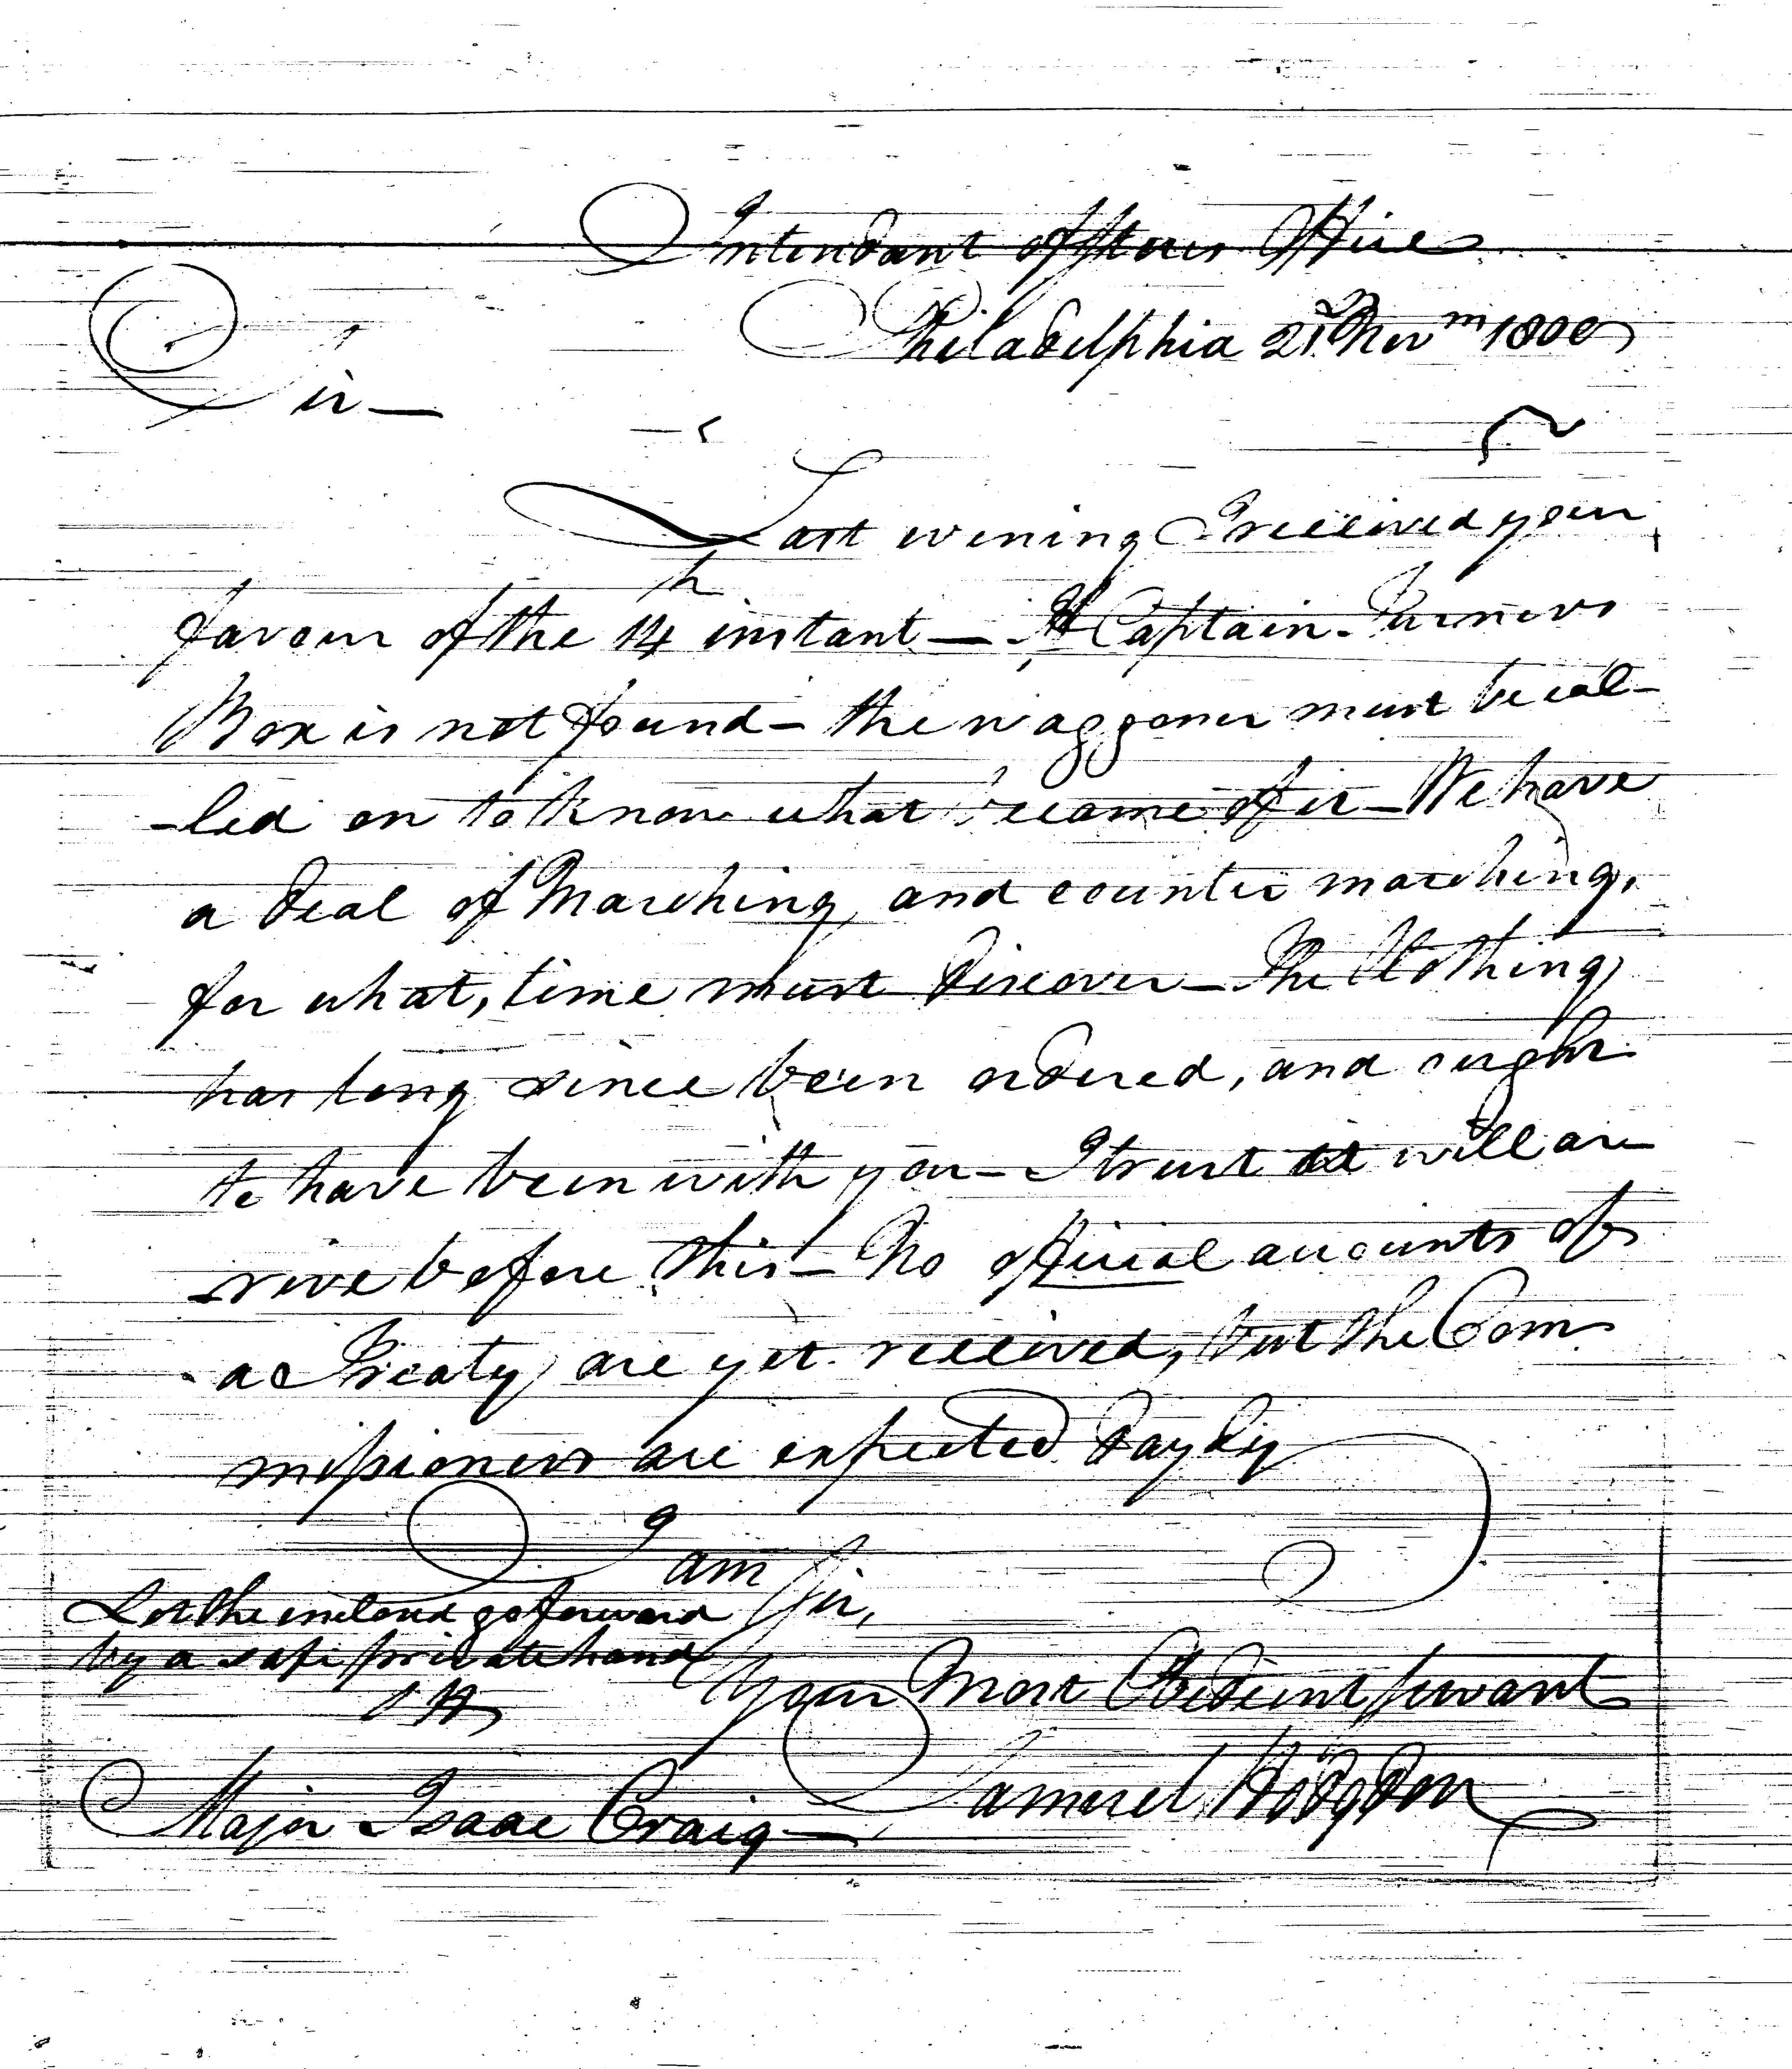 Intendant of Stores Office
Philadelphia 21st Novm 1800
Sir —
Last evening I received your
favour of the 14th instant — If Captain Turners
Box is not found — the waggoner must be cal-
-led on to know what became of it — We have
a deal of Marching, and counter marching,
for what, time must discover — The Clothing
has long since been ordered, and ought
to have been with you — I trust it will ar-
-rive before this — No official accounts of
a Treaty are yet received, but the Com-
missioners are expected dayly
I am
Sir,
Let the enclosed go forward
by a safe private hand
SH
Your Most Obedient servant
Samuel Hodgdon
Major Isaac Craig —